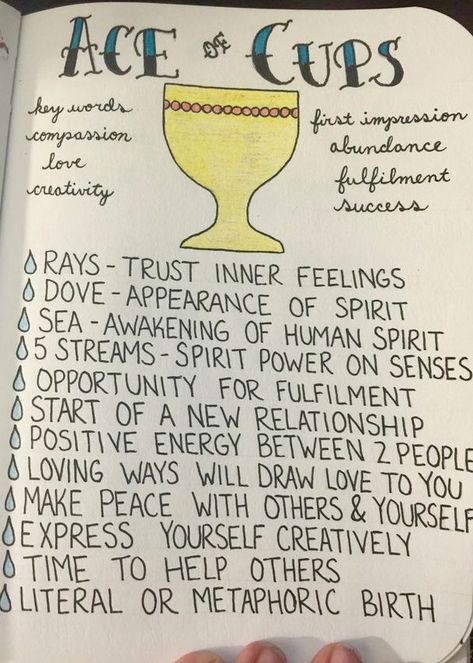 ACE OF CUPS
key words
compassion
love
creativity
first impression
abundance
fulfilment
success
RAYS - TRUST INNER FEELINGS
DOVE - APPEARANCE OF SPIRIT
SEA - AWAKENING OF HUMAN SPIRIT
5 STREAMS - SPIRIT POWER ON SENSES
OPPORTUNITY FOR FULFILMENT
START OF A NEW RELATIONSHIP
POSITIVE ENERGY BETWEEN 2 PEOPLE
LOVING WAYS WILL DRAW LOVE TO YOU
MAKE PEACE WITH OTHERS & YOURSELF
EXPRESS YOURSELF CREATIVELY
TIME TO HELP OTHERS
LITERAL OR METAPHORIC BIRTH